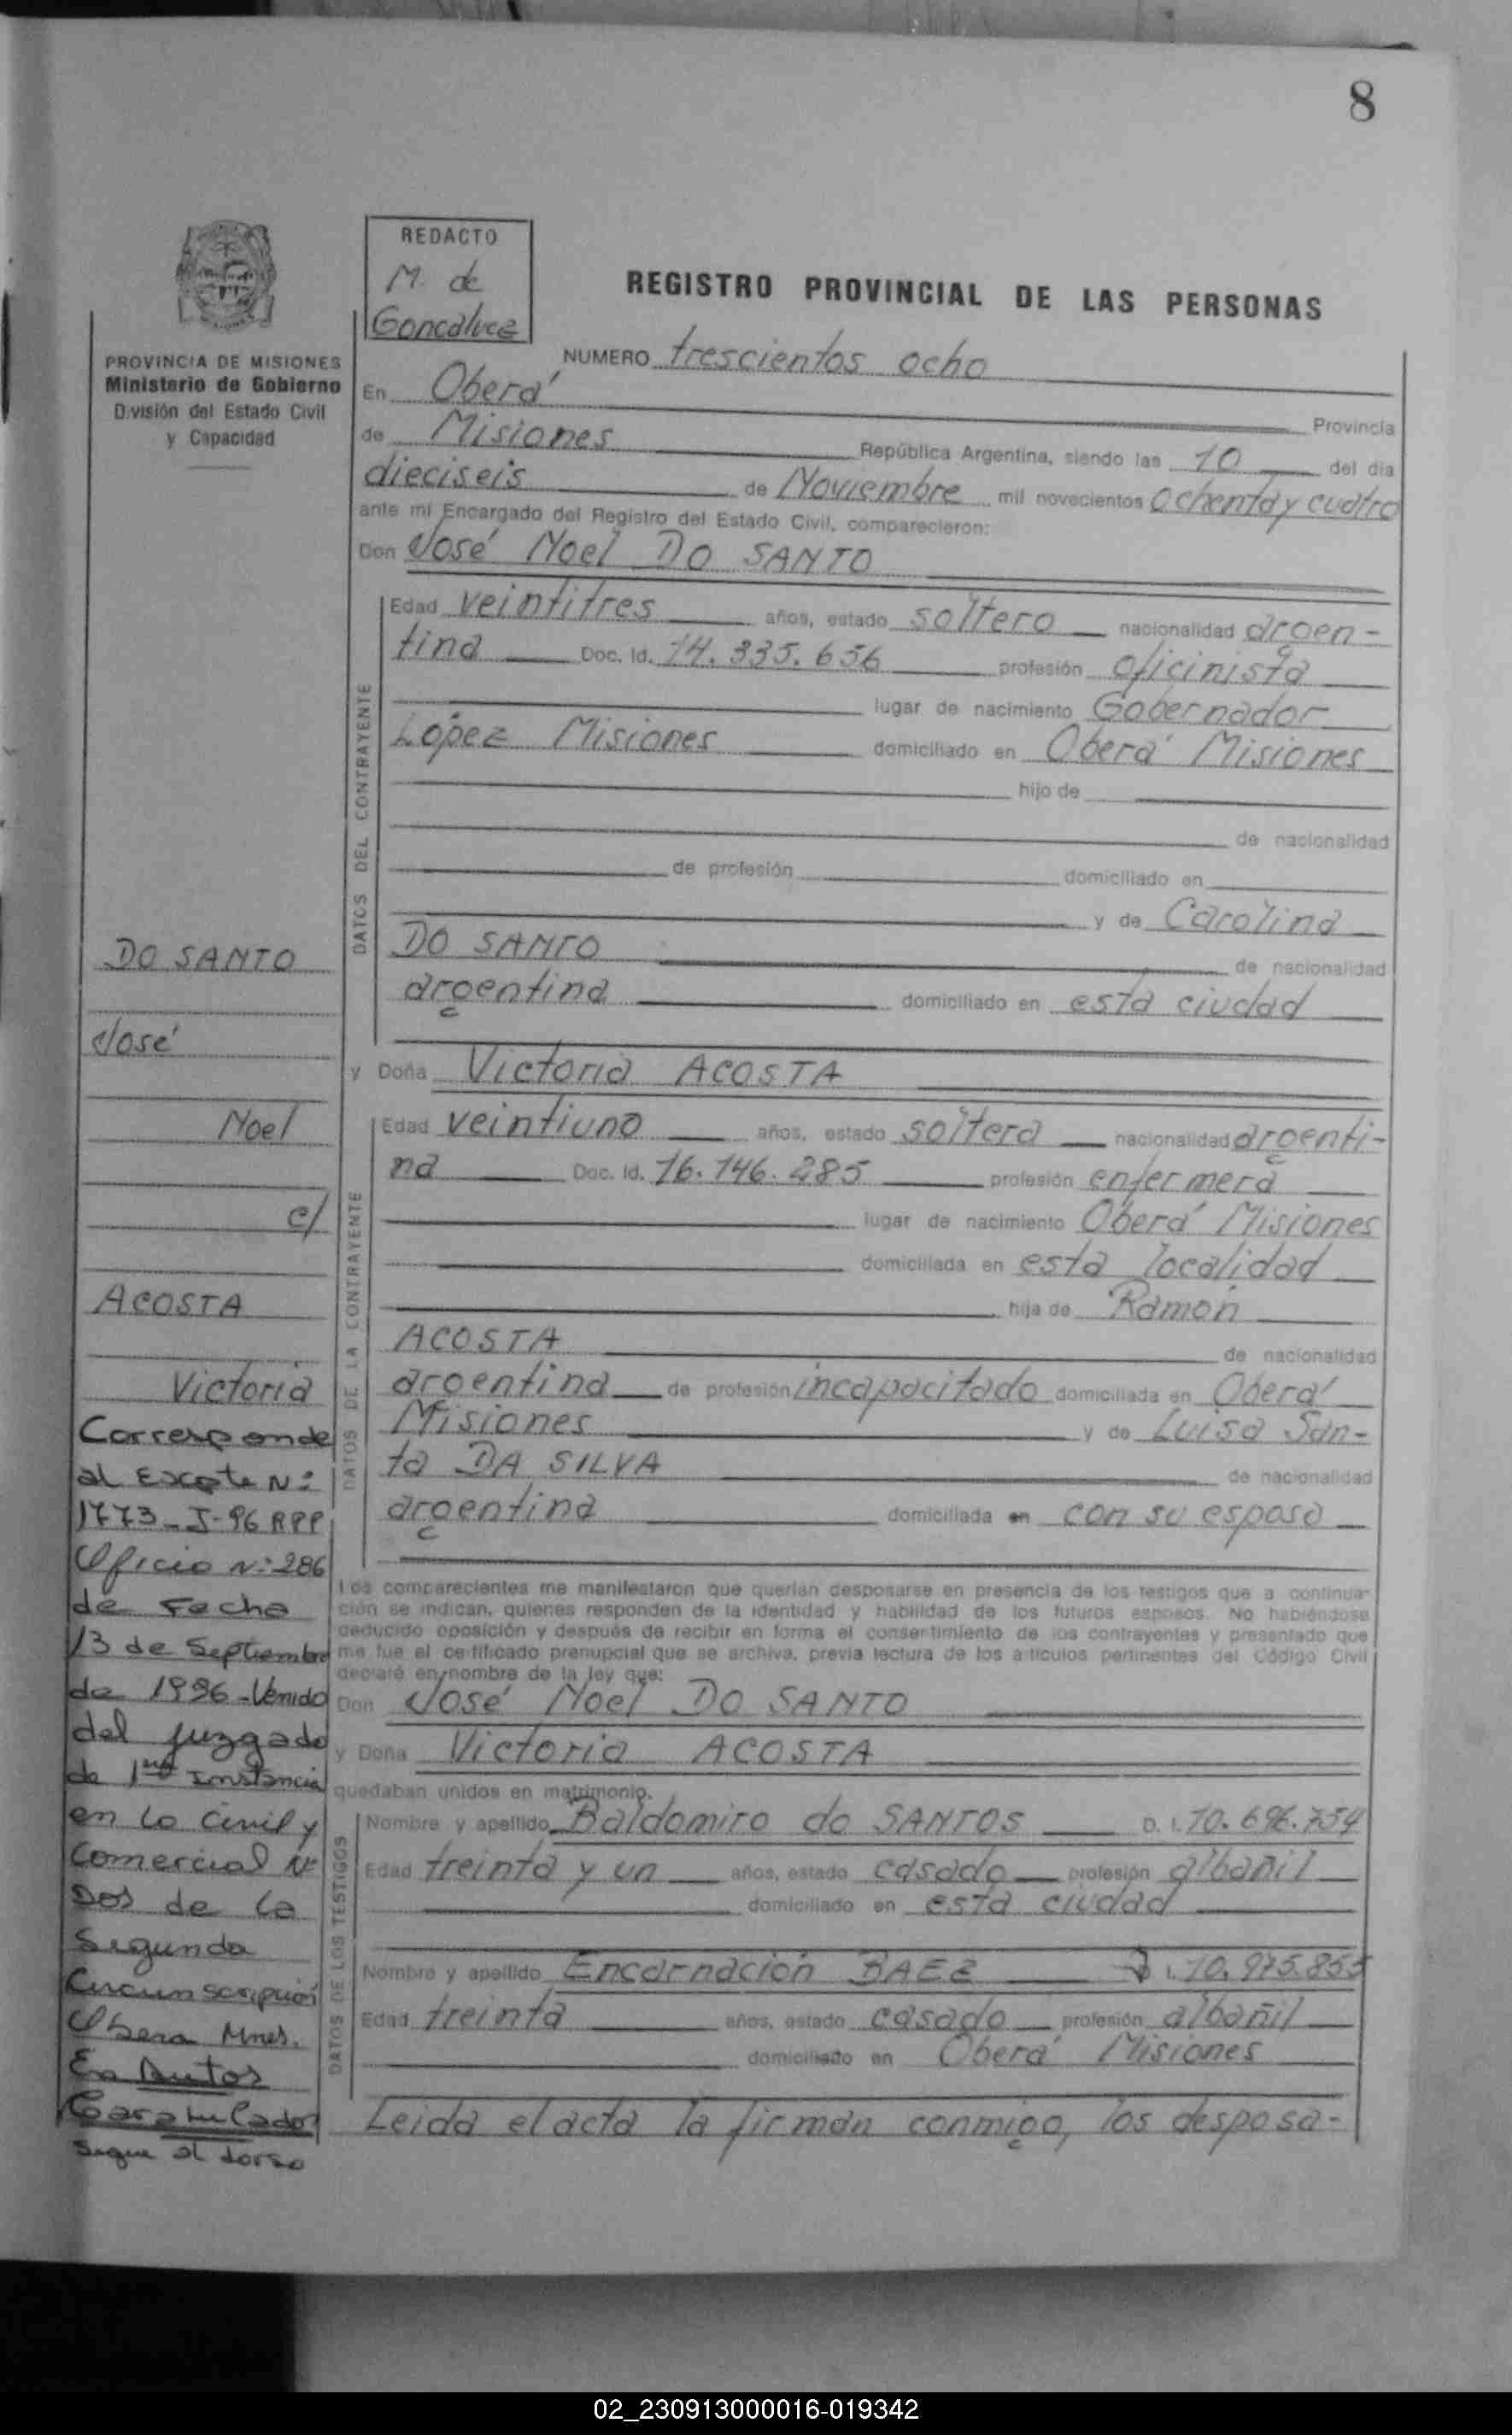 8
REDACTO
M. de
Goncalvez
REGISTRO PROVINCIAL DE LAS PERSONAS
PROVINCIA DE MISIONES
Ministerio de Gobierno
División del Estado Civil
y Capacidad
NUMERO trescientos ocho
En Oberá Provincia
de Misiones República Argentina, siendo las 10 del día
dieciseis de Noviembre mil novecientos ochenta y cuatro
ante mí Encargado del Registro del Estado Civil, comparecieron:
Don José Noel DO SANTO
DATOS DEL CONTRAYENTE
Edad veintitres años, estado soltero nacionalidad argen-
tina Doc. Id. 14.335.656 profesión oficinista
lugar de nacimiento Gobernador
López Misiones domiciliado en Oberá Misiones
hijo de
de nacionalidad
de profesión domiciliado en
y de Carolina
DO SANTO de nacionalidad
argentina domiciliado en esta ciudad
y Doña Victoria ACOSTA
DATOS DE LA CONTRAYENTE
Edad veintiuno años, estado soltera nacionalidad argenti-
na Doc. Id. 16.146.285 profesión enfermera
lugar de nacimiento Oberá Misiones
domiciliada en esta localidad
hija de Ramón
ACOSTA de nacionalidad
argentina de profesión incapacitado domiciliada en Oberá
Misiones y de Luisa San-
ta DA SILVA de nacionalidad
argentina domiciliada en con su esposo
Los comparecientes me manifestaron que querían desposarse en presencia de los testigos que a continua-
ción se indican, quienes responden de la identidad y habilidad de los futuros esposos. No habiéndose
deducido oposición y después de recibir en forma el consentimiento de los contrayentes y presentado que
me fue el certificado prenupcial que se archiva, previa lectura de los artículos pertinentes del Código Civil
declaré en nombre de la ley que:
Don José Noel DO SANTO
y Doña Victoria ACOSTA
quedaban unidos en matrimonio.
DATOS DE LOS TESTIGOS
Nombre y apellido Baldomiro do SANTOS D. I. 10.696.754
Edad treinta y un años, estado casado profesión albañil
domiciliado en esta ciudad
Nombre y apellido Encarnación BAEZ D I. 10.975.855
Edad treinta años, estado casado profesión albañil
domiciliado en Oberá Misiones
Leida el acta la firman conmigo, los desposa-
DO SANTO
José
Noel
c/
ACOSTA
Victoria
Corresponde
al Expte N:
1773-I-96 RPP
Oficio N: 286
de Fecha
13 de Septiembre
de 1996 - Venido
del juzgado
de 1ra Instancia
en lo Civil y
Comercial N:
Dos de la
Segunda
Circunscripción
Obera Mnes.
En Autos
Caratulados
Sigue al dorso
02_230913000016-019342